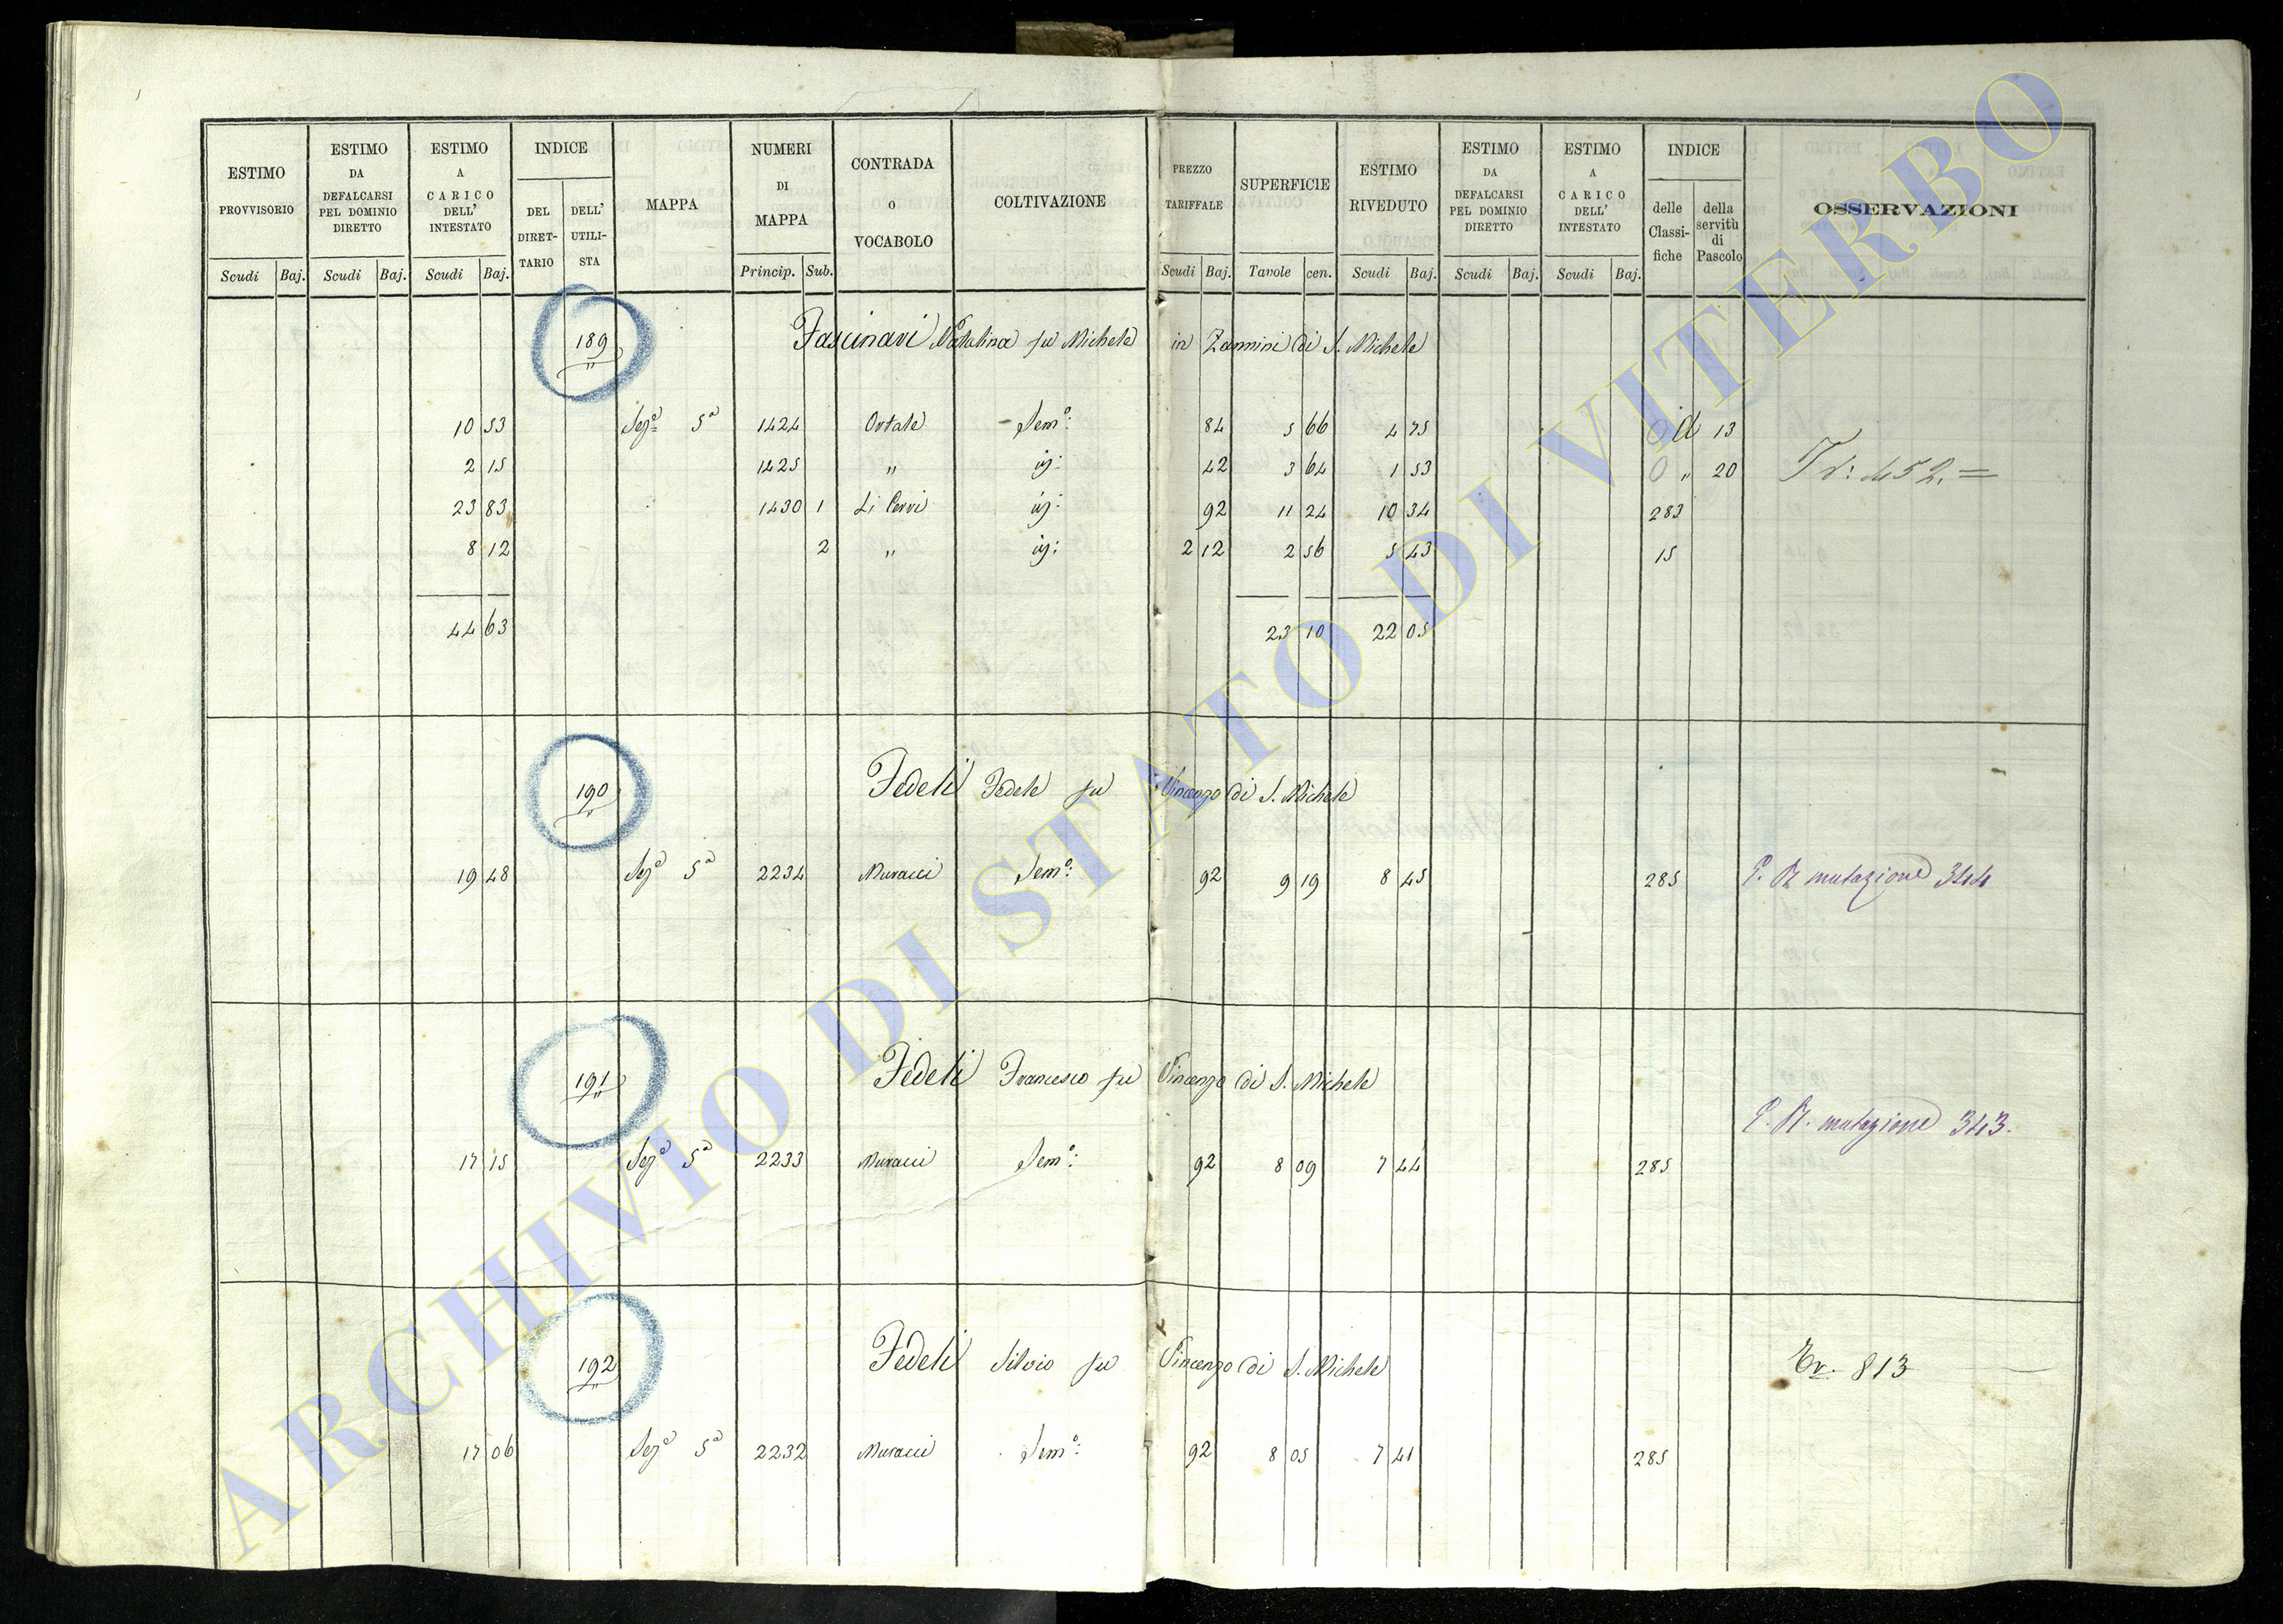 ESTIMO PROVVISORIO
ESTIMO DA DEFALCARSI PEL DOMINIO DIRETTO
ESTIMO A CARICO DELL' INTESTATO
INDICE
DEL DIRET- TARIO
DELL' UTILI- STA
MAPPA
NUMERI DI MAPPA
CONTRADA O VOCABOLO
COLTIVAZIONE
PREZZO TARIFFALE
SUPERFICIE
ESTIMO RIVEDUTO
ESTIMO DA DEFALCARSI PEL DOMINIO DIRETTO
ESTIMO A CARICO DELL' INTESTATO
INDICE
delle Classi- fiche
della servitù di Pascolo
OSSERVAZIONI
Scudi Baj. Scudi Baj. Scudi Baj. Princip. Sub. Scudi Baj. Tavole cen. Scudi Baj. Scudi Baj. Scudi Baj.
189 Fascinari Natalina fu Michele in Zannini di S. Michele
10 53 Sez.ª 5ª 1424 Ortale Sem.º: 84 5 66 4 75 a 13
2 15 1425 " id: 42 3 64 1 53 " 20 452.=
23 83 1430 1 Li Cerri id: 92 11 24 10 34 283
8 12 2 " id: 2 12 2 56 5 43 15
44 63 23 10 22 05
190 Fedeli Fedele fu Vincenzo di S. Michele
19 48 Sezª 5ª 2234 Muracci Sem.º: 92 9 19 8 45 285 mutazione 344
191 Fedeli Francesco fu Vincenzo di S. Michele
mutazione 343.
17 15 Sezª 5ª 2233 Muracci Sem.º: 92 8 09 7 44 285
192 Fedeli Silvio fu Vincenzo di S. Michele Tr. 813
17 06 Sezª 5ª 2232 Muracci Sem.º: 92 8 05 7 41 285
ARCHIVIO DI STATO DI VITERBO